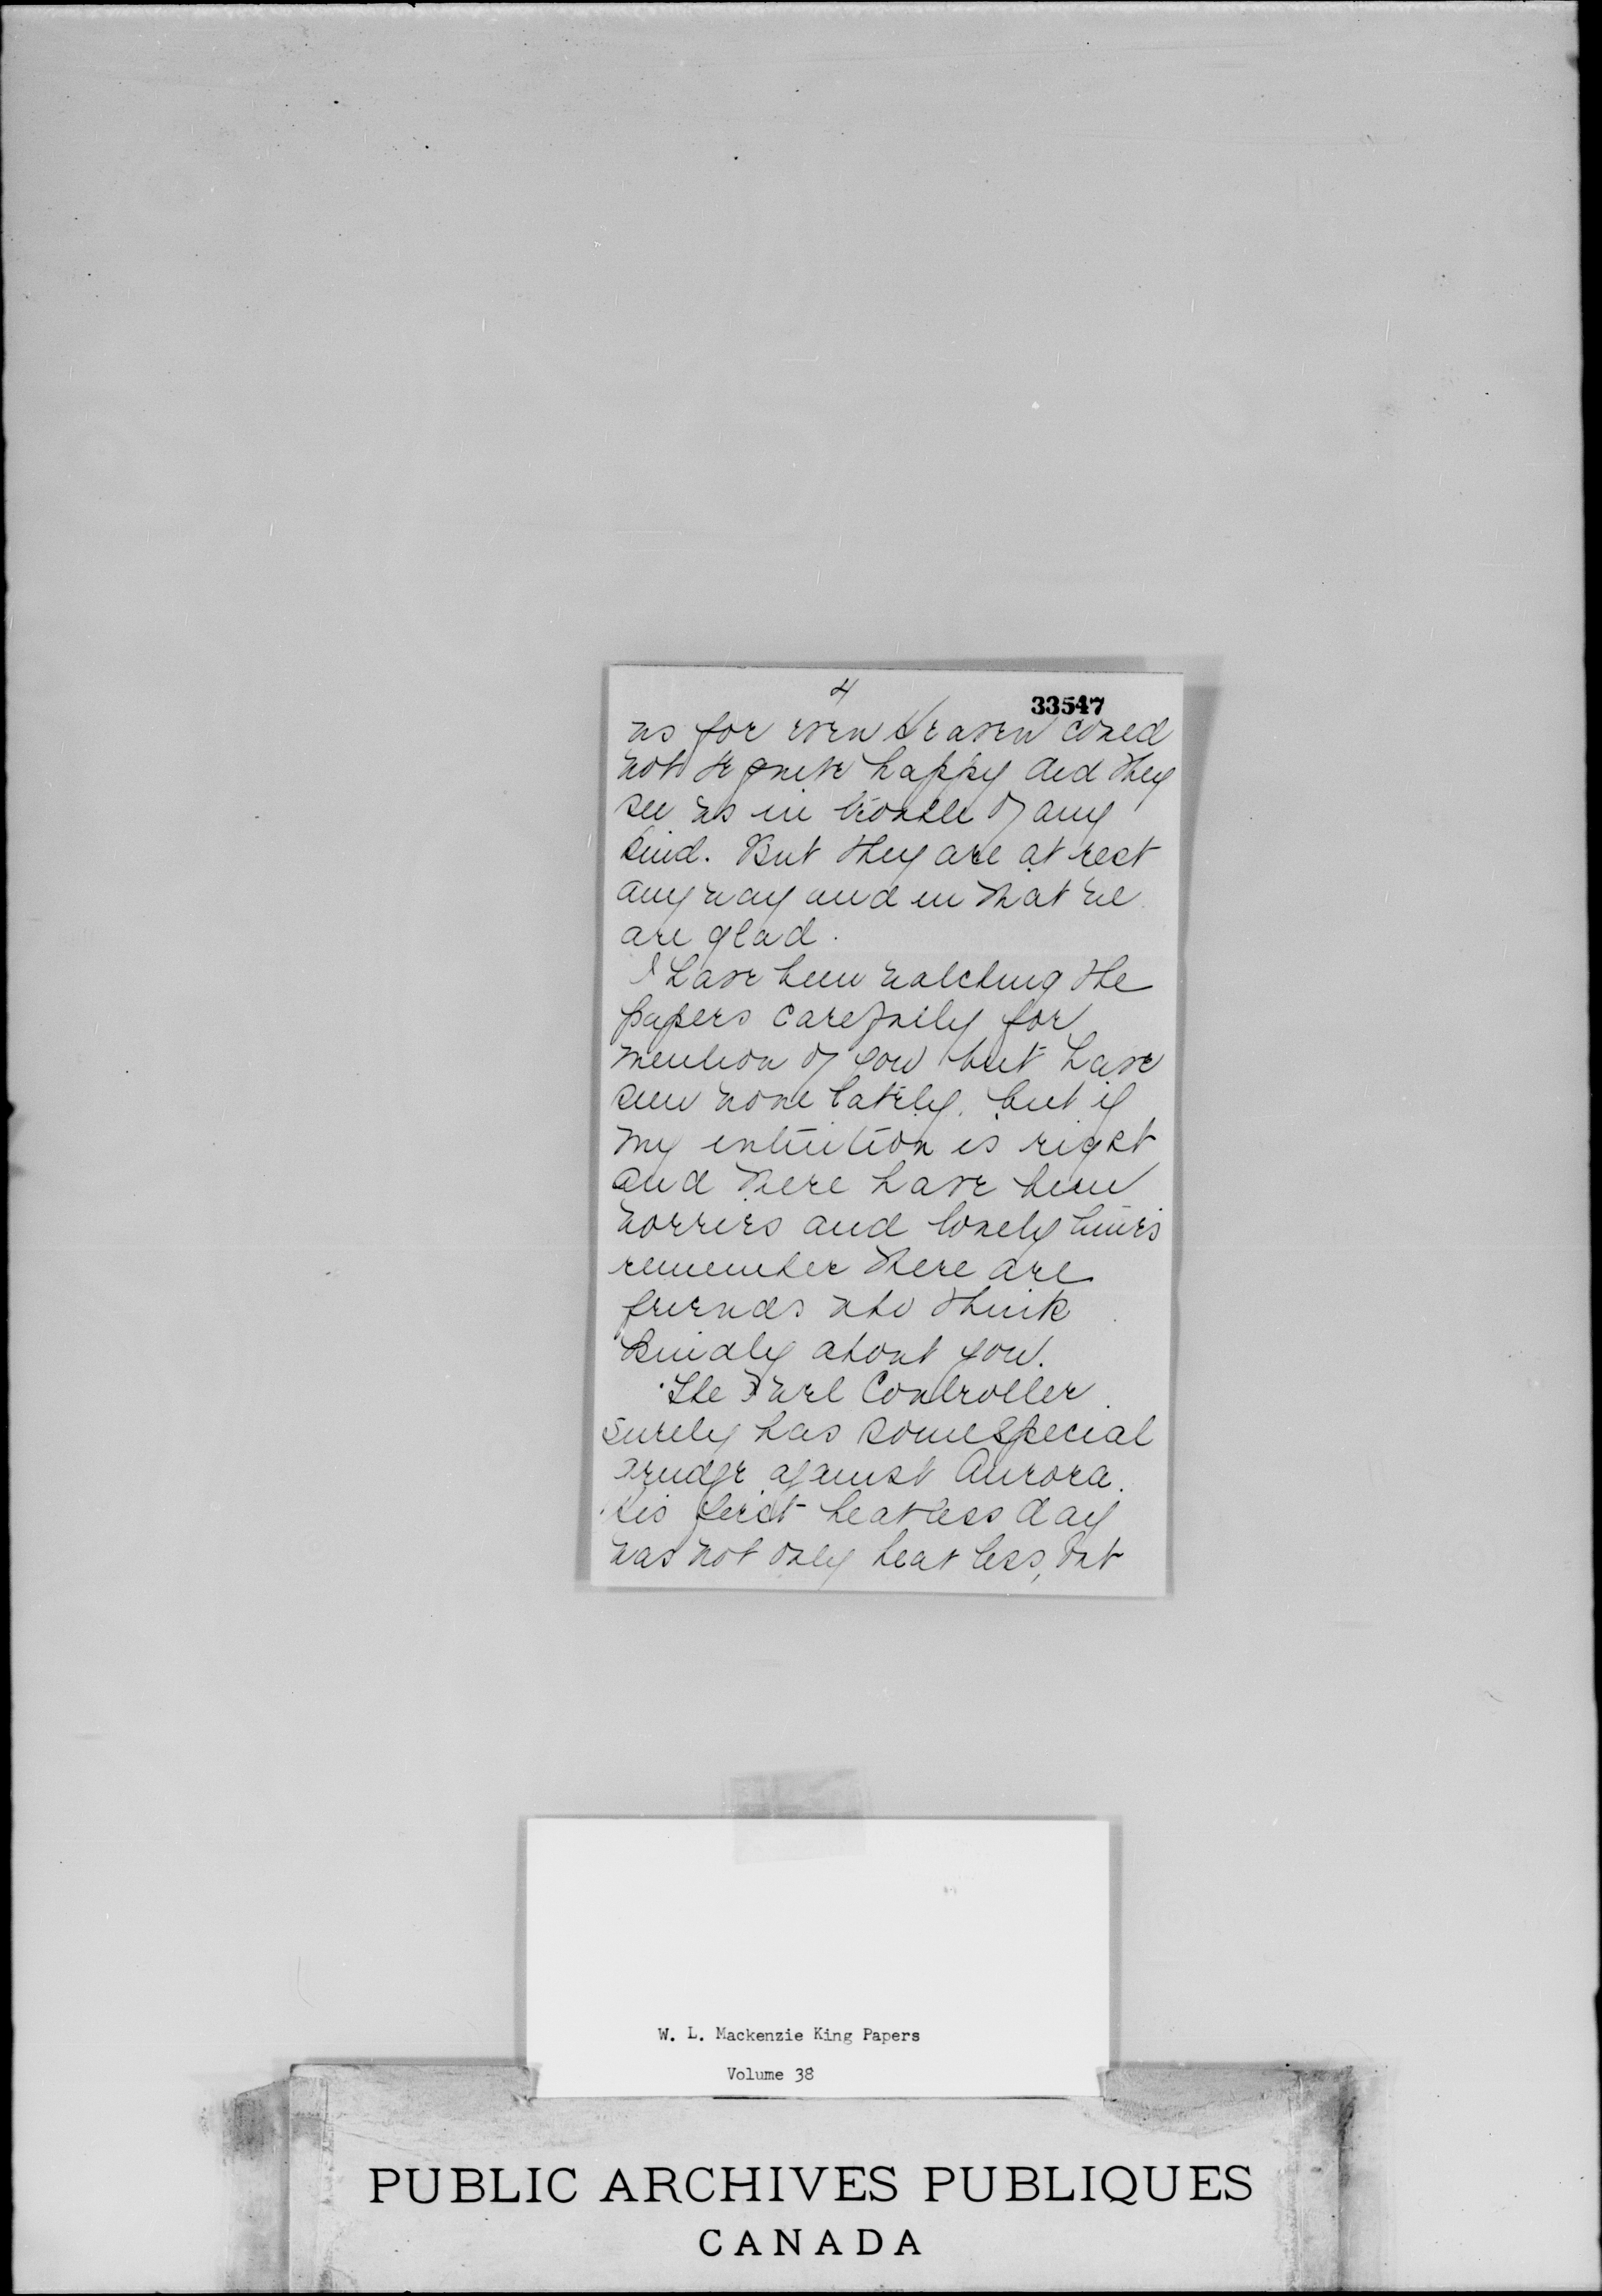 4
33547
us for even Heaven could
not be quite happy did they
see us in trouble of any
kind. But they are at rest
anyway and in that we
are glad.
I have been watching the
papers carefully for
mention of you but have
seen none lately. but if
my intuition is right
and there have been
worries and lonely times
remember there are
friends who think
kindly about you.
The Fuel Controller
surely has some special
grudge against Aurora.
His first heatless day
was not only heatless, but
W. L. Mackenzie King Papers
Volume 38
PUBLIC ARCHIVES PUBLIQUES
CANADA